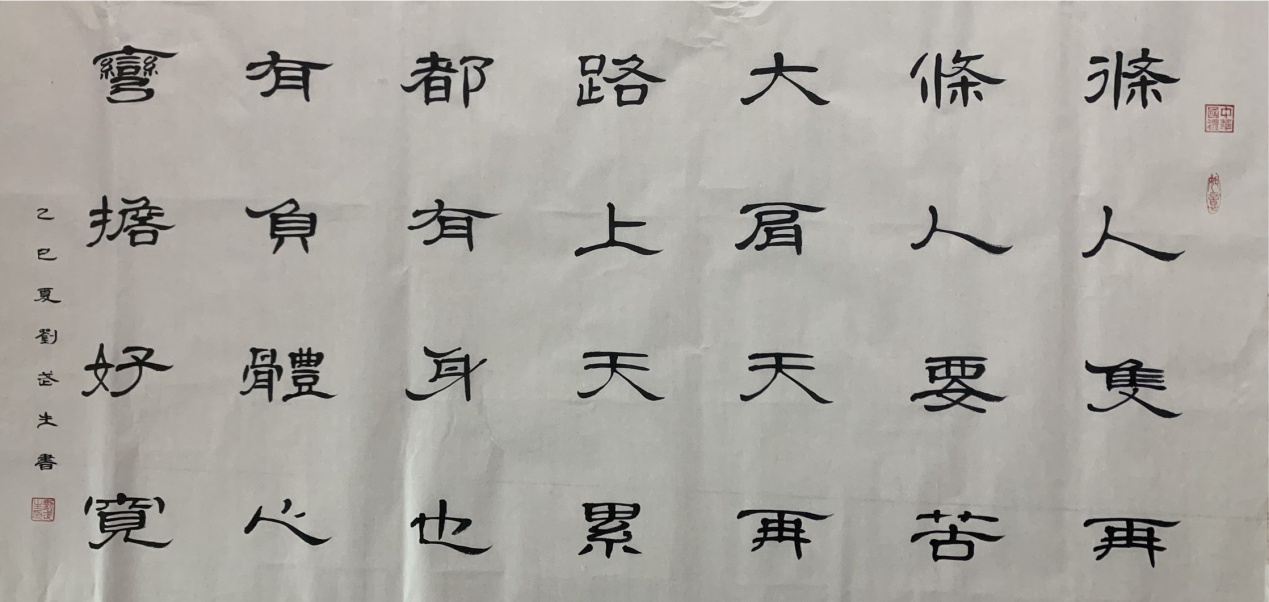 條條大路都有彎
人人肩上有負擔
隻要天天身體好
再苦再累也心寬
乙巳夏劉武生書